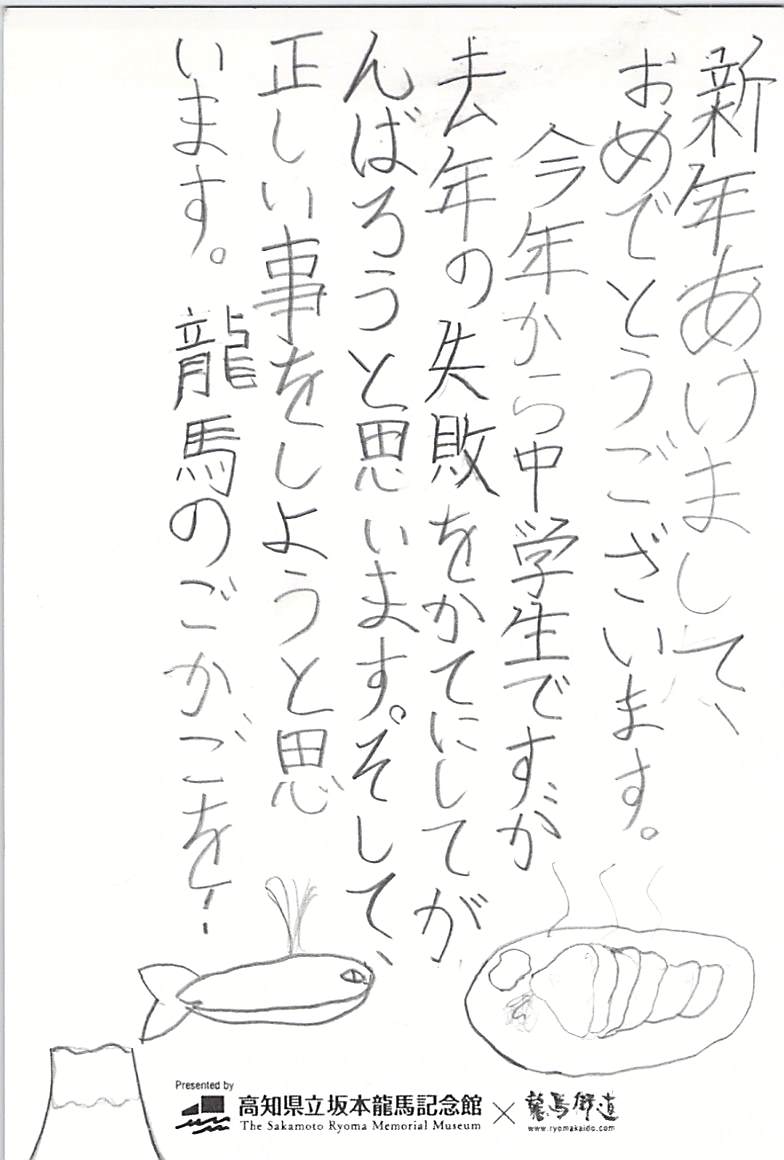 新年あけまして、
おめでとうございます。
今年から中学生ですが
去年の失敗をかてにしてが
んばろうと思います。そして、
正しい事をしようと思
います。龍馬のごかごを!
Presented by
高知県立坂本龍馬記念館
The Sakamoto Ryoma Memorial Museum
×
龍馬街道
www.ryomakaido.com